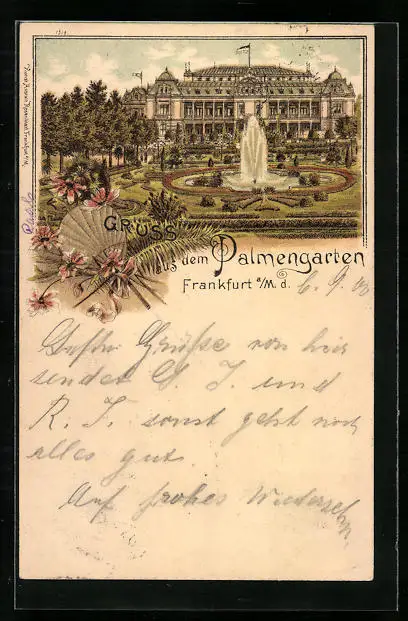 GRUSS
aus dem Palmengarten
Frankfurt a/M. d. 6. 9.
Grüße von hier
sendet G. J. und
R. J. sonst geht noch
alles gut.
Auf frohes Wiedersehn